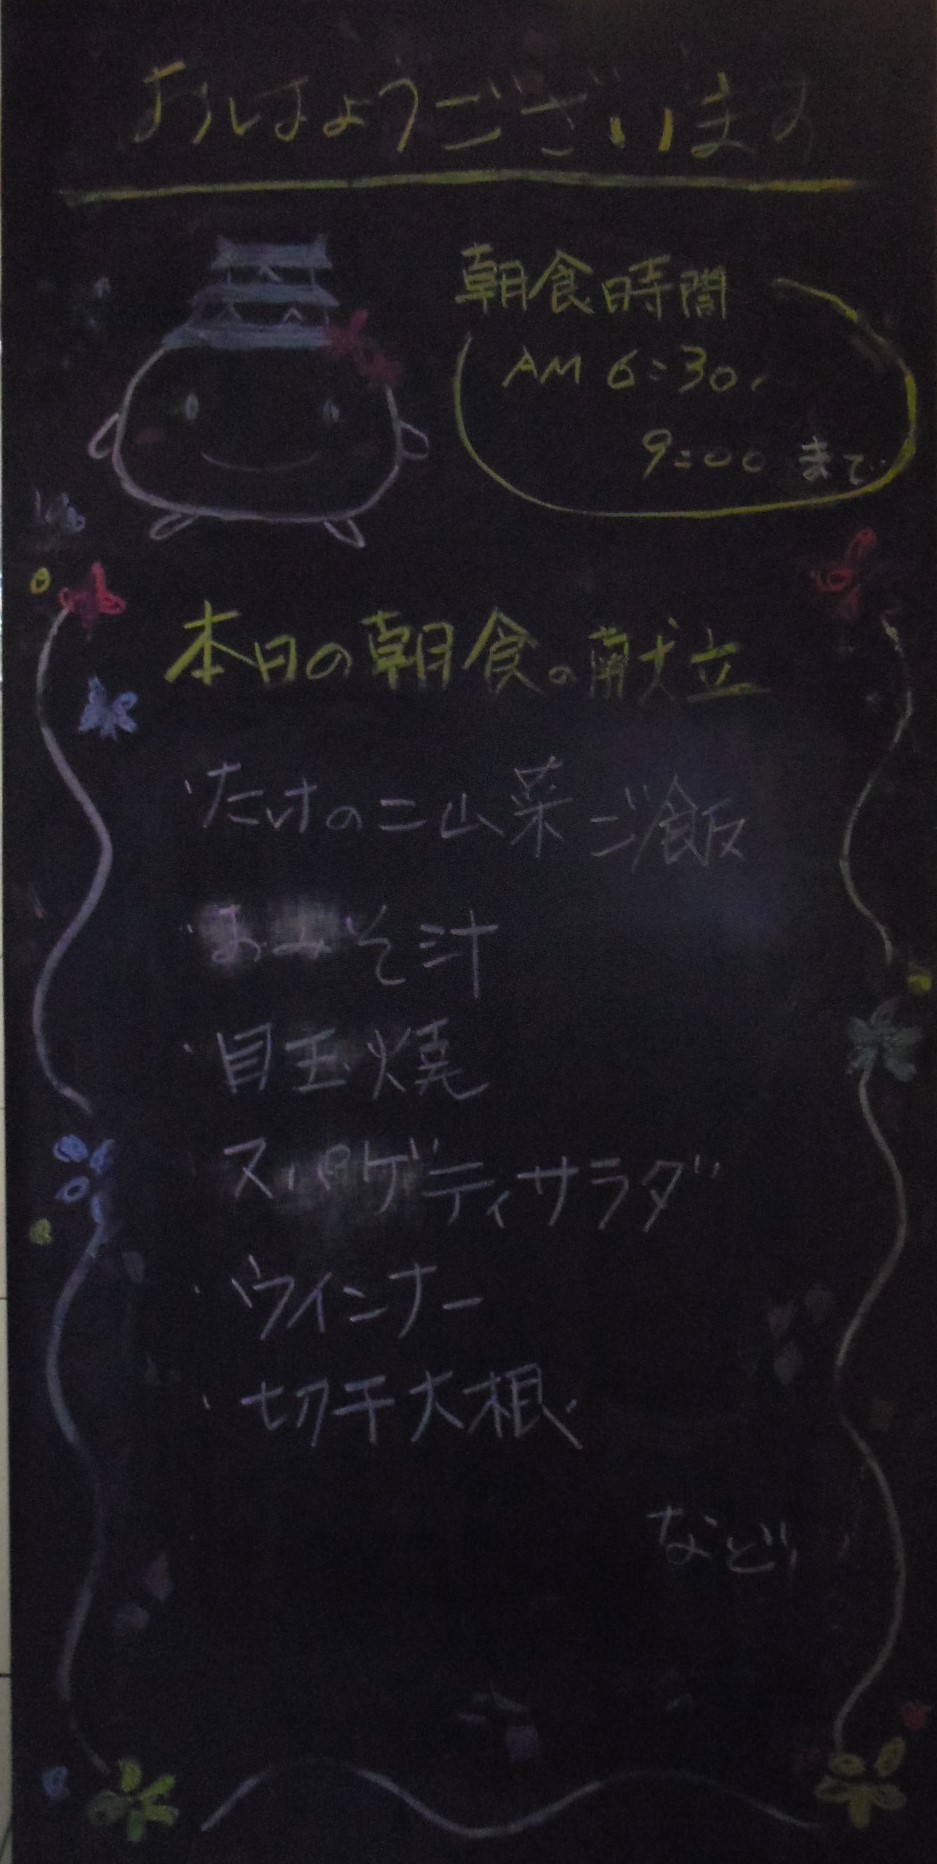 おはようございます
朝食時間
AM 6:30〜
9:00 まで
本日の朝食の献立
・たけのこ山菜ご飯
・おみそ汁
・目玉焼
・スパゲティサラダ
・ウインナー
・切干大根
など